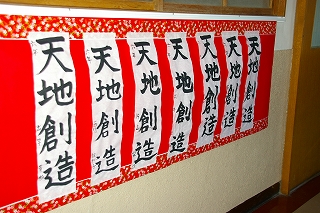 天地創造
天地創造
天地創造
天地創造
天地創造
天地創造
天地創造